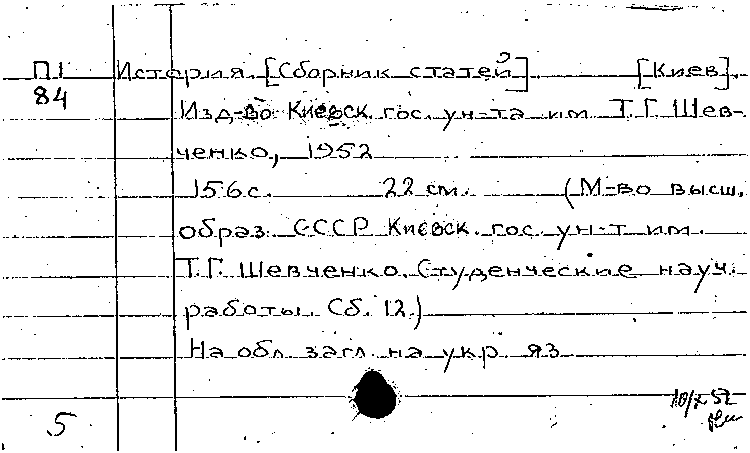 П1 История. [Сборник статей]. [Киев].
84
Изд-во Киевск. гос. ун-та им. Т.Г. Шев-
ченко, 1952
156 с. 22 см. (М-во высш.
образ. СССР Киевск. гос. ун-т им.
Т.Г. Шевченко. Студенческие науч.
работы. Сб. 12.)
На обл. загл. на укр. яз.
5